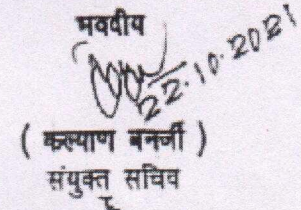 भवदीय
22.10.2021
( कल्याण बनर्जी )
संयुक्त सचिव